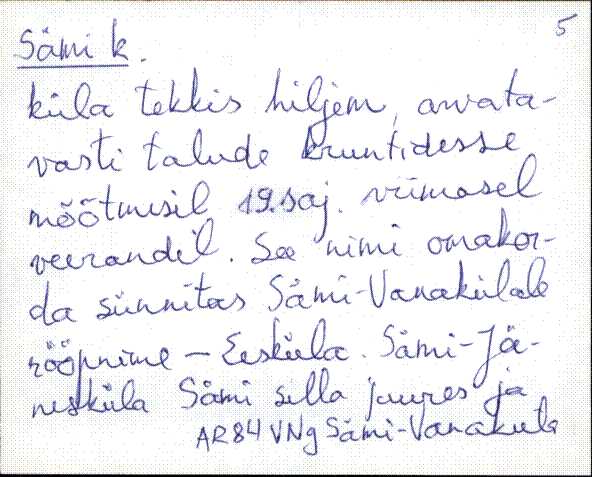 5
Sämi k.
küla tekkis hiljem, arvata-
vasti talude kruntidesse
mõõtmisel 19. saj. viimasel
veerandil. See nimi omakor-
da sünnitas Sämi-Vanakülale
rööpnime - Eesküla. Sämi-Jä-
nesküla Sämi silla juures ja
AR84 VNg Sämi-Vanaküla